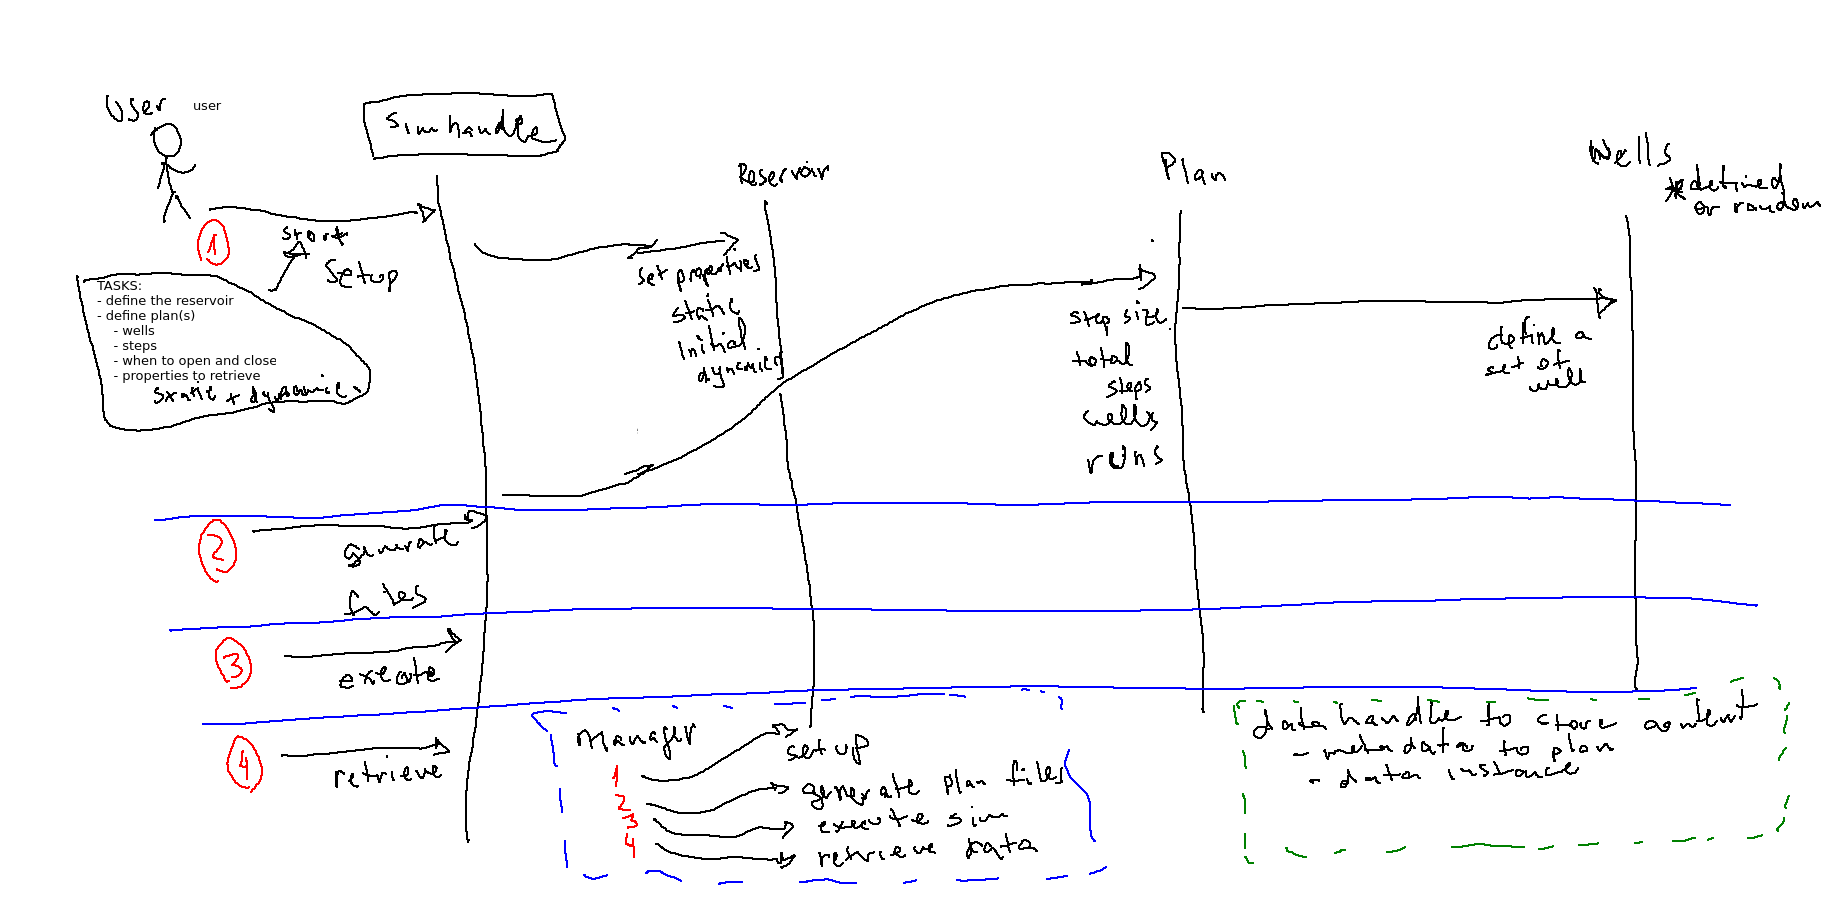 User
user
Simhandle
Reservoir
Plan
Wells
*defined
or random
1
start
setup
TASKS:
- define the reservoir
- define plan(s)
- wells
- steps
- when to open and close
- properties to retrieve
static + dynamic
set properties
static
initial
dynamics
step size
total
steps
wells
runs
define a
set of
well
2
generate
files
3
execute
4
retrieve
Manager
1
setup
2
generate plan files
3
execute sim
4
retrieve data
data handle to store content
- metadata to plan
- data instance